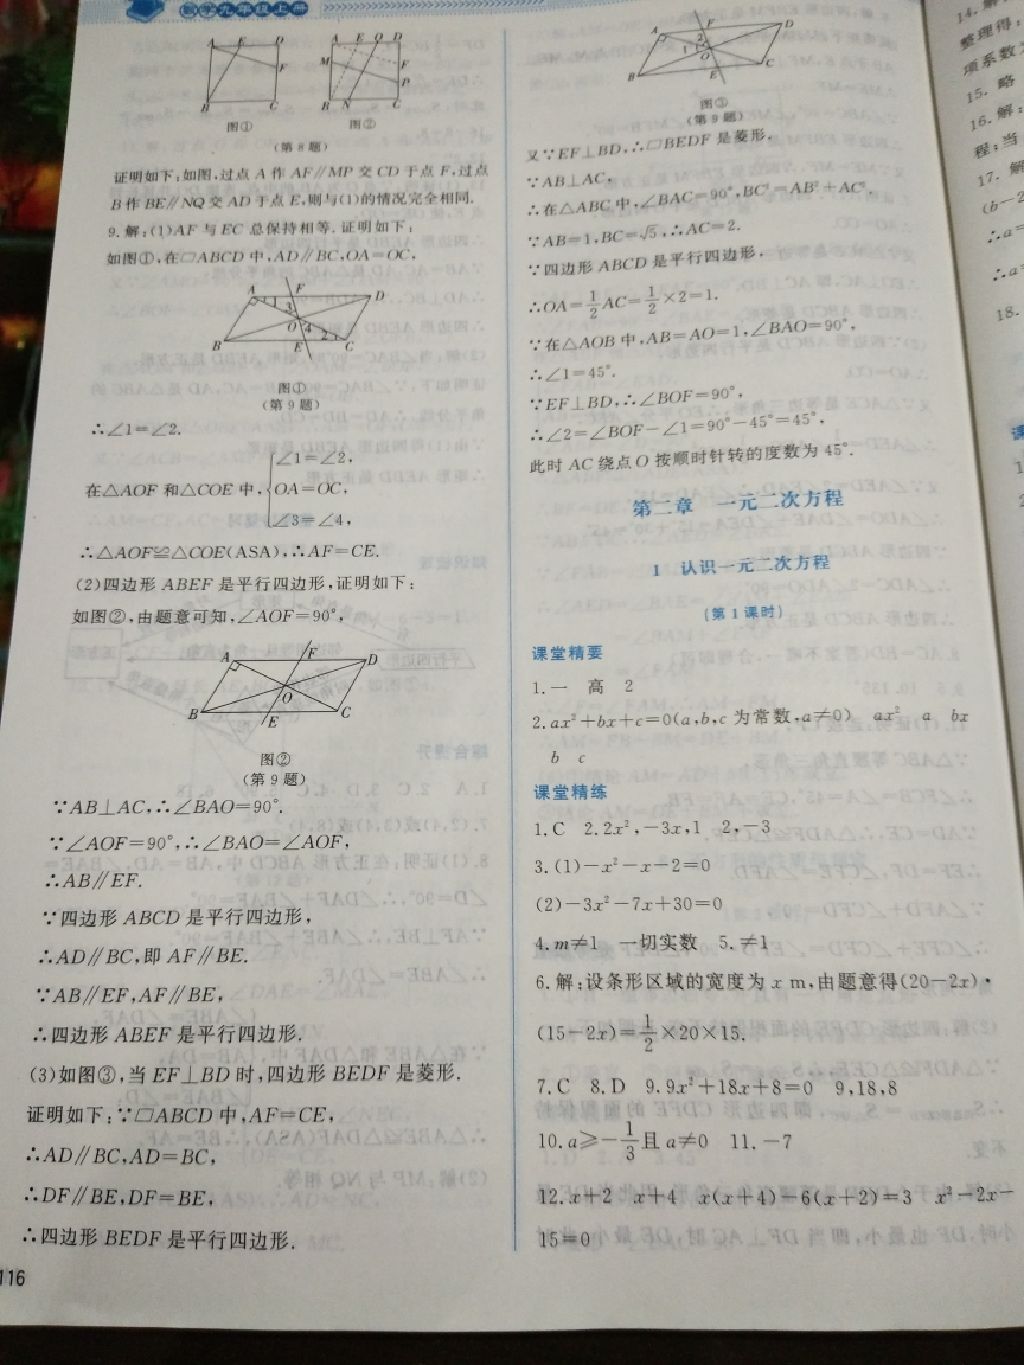 数学九年级上册
A E D
F
B C
图①
A E Q D
M F
P
B N C
图②
(第8题)
证明如下:如图,过点 A 作 AF∥MP 交 CD 于点 F,过点
B 作 BE∥NQ 交 AD 于点 E,则与(1)的情况完全相同.
9.解:(1)AF 与 EC 总保持相等.证明如下:
如图①,在▱ABCD 中,AD∥BC,OA=OC,
A F D
1 3
O 4
2
B E C
图①
(第9题)
∴∠1=∠2.
∠1=∠2,
在△AOF 和△COE 中,{OA=OC,
∠3=∠4,
∴△AOF≌△COE(ASA),∴AF=CE.
(2)四边形 ABEF 是平行四边形,证明如下:
如图②,由题意可知,∠AOF=90°,
A F D
O
B E C
图②
(第9题)
∵AB⊥AC,∴∠BAO=90°.
∵∠AOF=90°,∴∠BAO=∠AOF,
∴AB∥EF.
∵四边形 ABCD 是平行四边形,
∴AD∥BC,即 AF∥BE.
∵AB∥EF,AF∥BE,
∴四边形 ABEF 是平行四边形.
(3)如图③,当 EF⊥BD 时,四边形 BEDF 是菱形.
证明如下:∵▱ABCD 中,AF=CE,
∴AD∥BC,AD=BC,
∴DF∥BE,DF=BE,
∴四边形 BEDF 是平行四边形.
116
A F D
2
1 O
B E C
图③
(第9题)
又∵EF⊥BD,∴▱BEDF 是菱形.
∵AB⊥AC,
∴在△ABC 中,∠BAC=90°,BC²=AB²+AC².
∵AB=1,BC=√5,∴AC=2.
∵四边形 ABCD 是平行四边形,
∴OA=1/2AC=1/2×2=1.
∵在△AOB 中,AB=AO=1,∠BAO=90°,
∴∠1=45°.
∵EF⊥BD,∴∠BOF=90°,
∴∠2=∠BOF-∠1=90°-45°=45°,
此时 AC 绕点 O 按顺时针转的度数为 45°.
第二章 一元二次方程
1 认识一元二次方程
(第1课时)
课堂精要
1.一 高 2
2.ax²+bx+c=0(a,b,c 为常数,a≠0) ax² a bx
b c
课堂精练
1.C 2.2x²,-3x,1 2,-3
3.(1)-x²-x-2=0
(2)-3x²-7x+30=0
4.m≠1 一切实数 5.≠1
6.解:设条形区域的宽度为 x m,由题意得(20-2x)·
(15-2x)=1/2×20×15.
7.C 8.D 9.9x²+18x+8=0 9,18,8
10.a≥-1/3且 a≠0 11.-7
12.x+2 x+4 x(x+4)-6(x+2)=3 x²-2x-
15=0
14.解
整理得:
项系数
15.略
16.解:
程;当
17.解
(b-2
∴a=
∴a=
18.